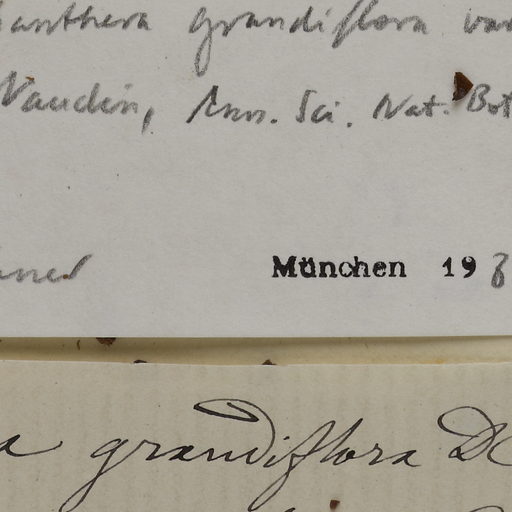 anthera grandiflora var
Naudin, Ann. Sci. Nat. Bot
München 198
a grandiflora DC